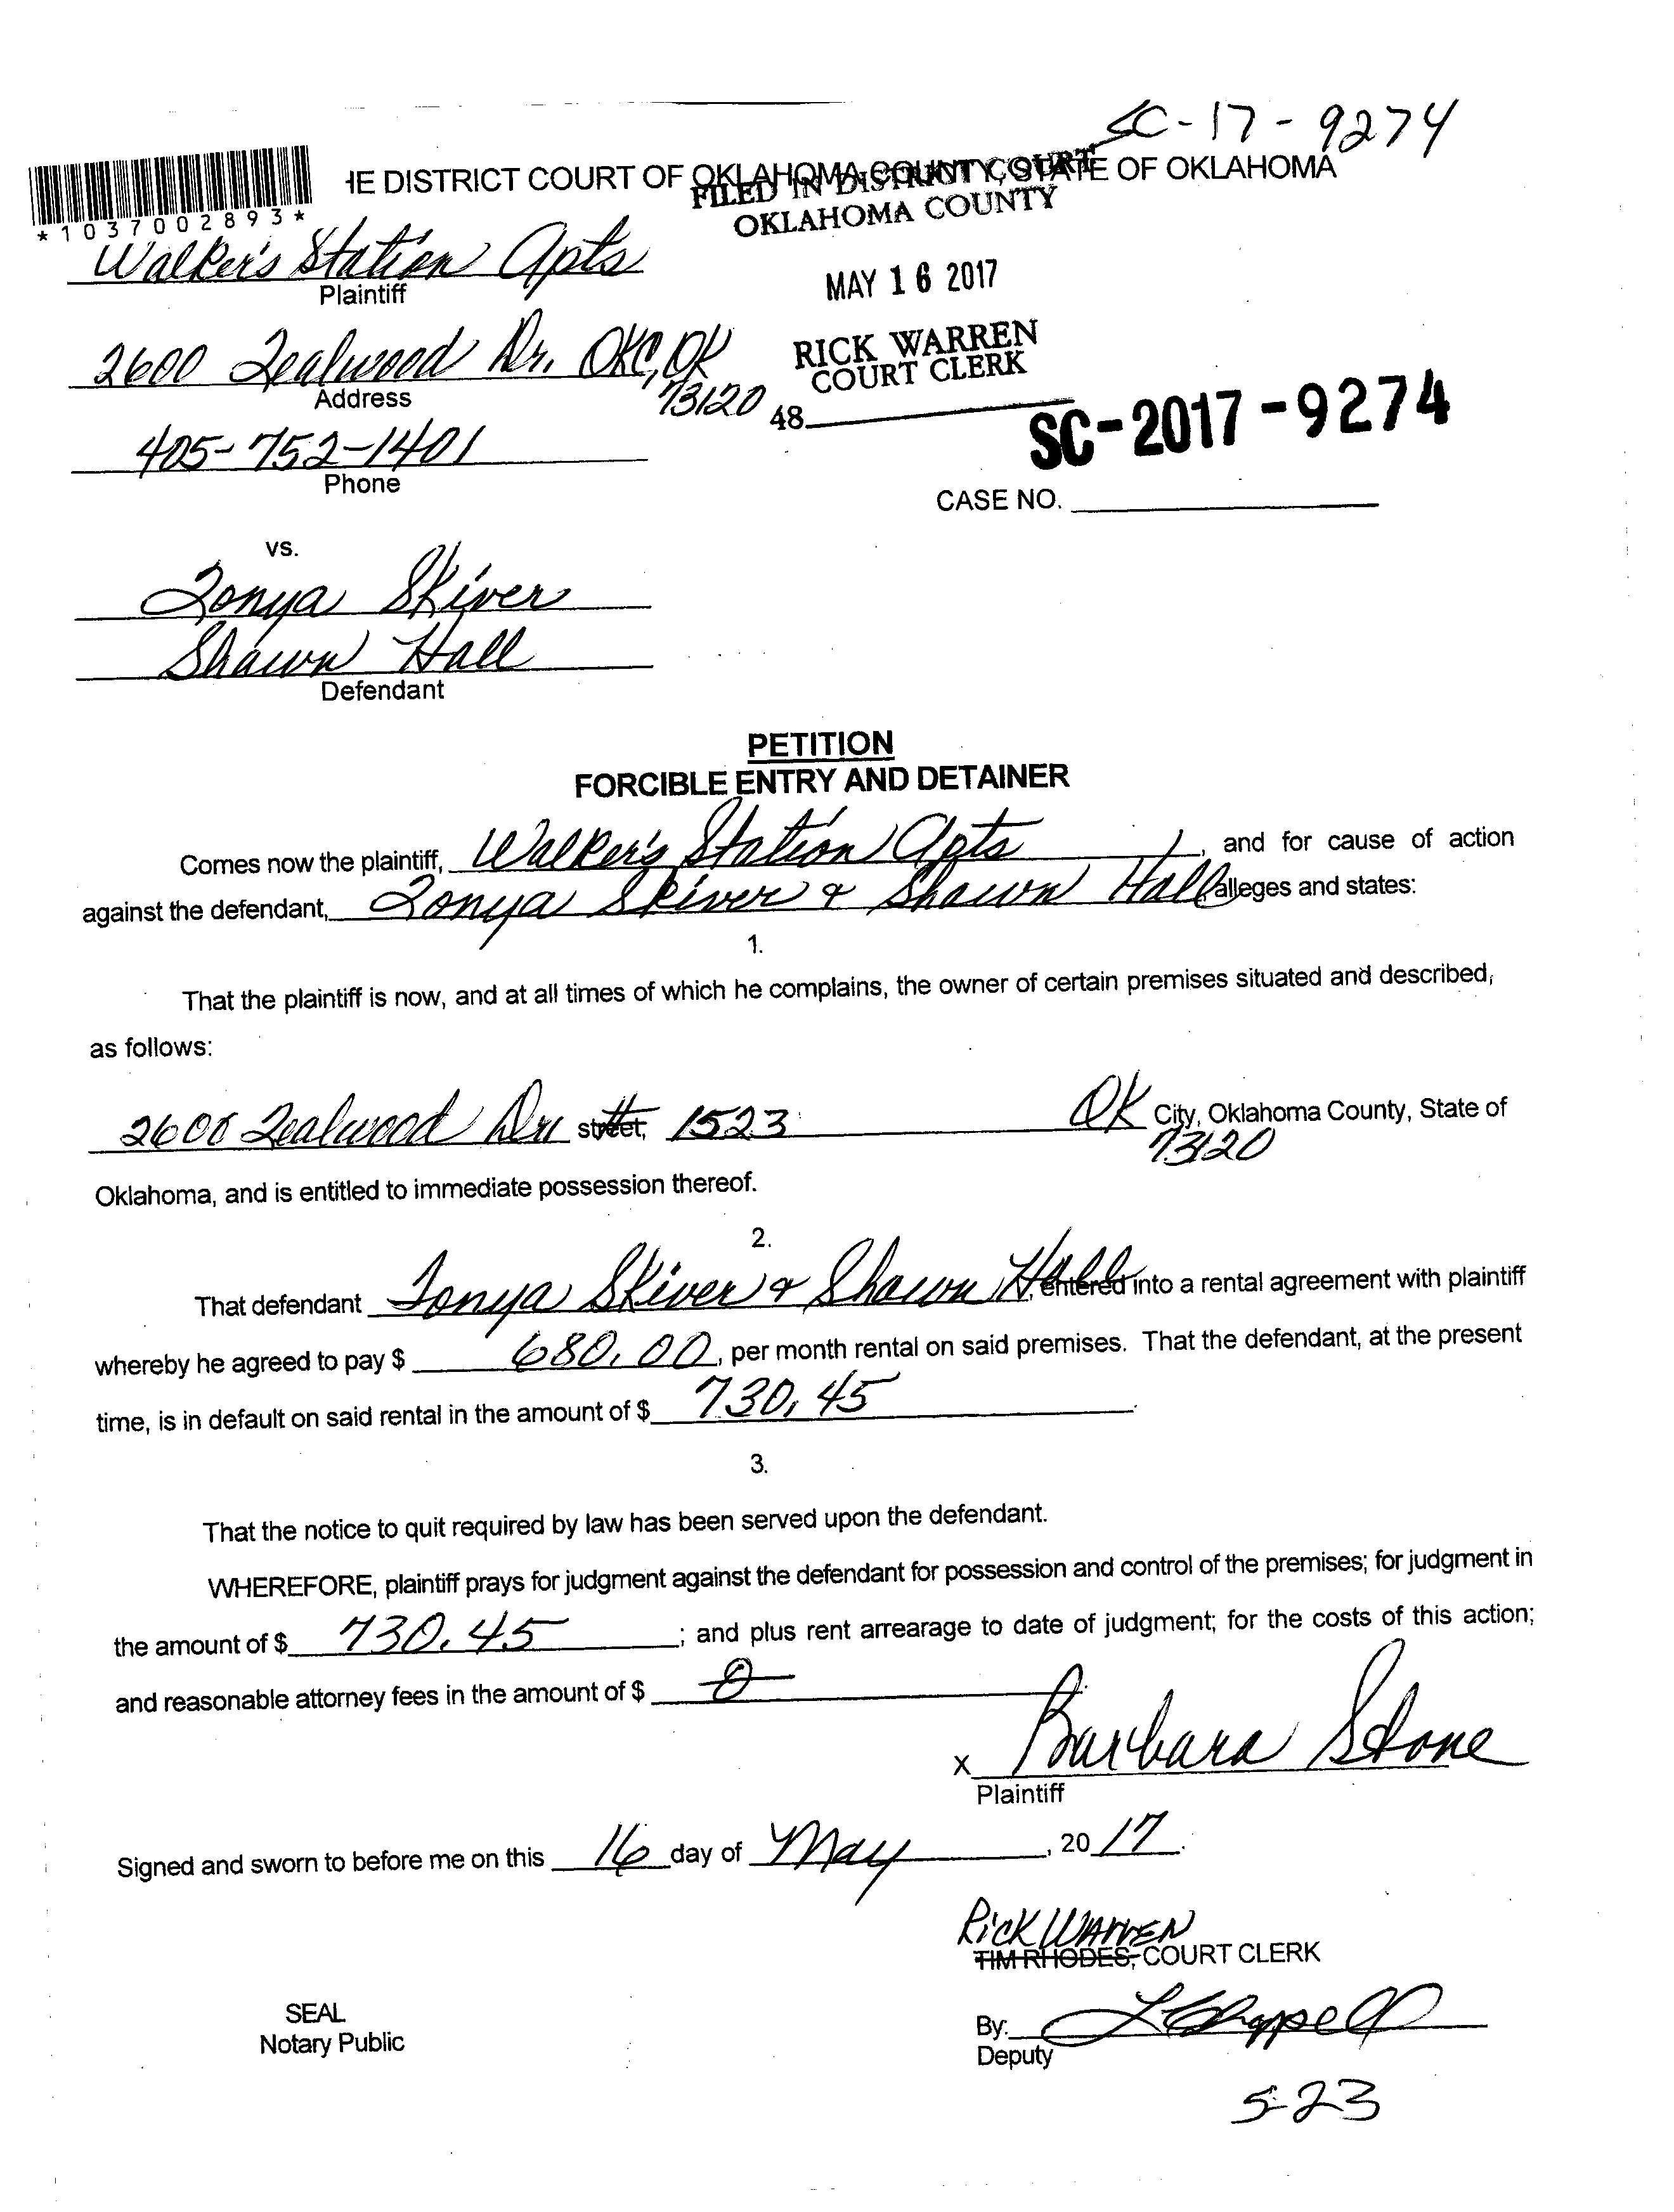 SC-17-9274
HE DISTRICT COURT OF OKLAHOMA COUNTY, STATE OF OKLAHOMA
FILED IN DISTRICT COURT
OKLAHOMA COUNTY
*1037002893*
Walker's Station Apts
Plaintiff
MAY 16 2017
2600 Tealwood Dr. OKC, OK
73120
Address
RICK WARREN
COURT CLERK
48
405-752-1401
Phone
SC-2017-9274
CASE NO.
vs.
Tonya Skiver
Shawn Hall
Defendant
PETITION
FORCIBLE ENTRY AND DETAINER
Comes now the plaintiff, Walker's Station Apts, and for cause of action
against the defendant, Tonya Skiver & Shawn Hall, alleges and states:
1.
That the plaintiff is now, and at all times of which he complains, the owner of certain premises situated and described,
as follows:
2600 Tealwood Dr street, # 1523 OK City, Oklahoma County, State of
73120
Oklahoma, and is entitled to immediate possession thereof.
2.
That defendant Tonya Skiver & Shawn Hall, entered into a rental agreement with plaintiff
whereby he agreed to pay $ 680.00, per month rental on said premises. That the defendant, at the present
time, is in default on said rental in the amount of $ 730.45.
3.
That the notice to quit required by law has been served upon the defendant.
WHEREFORE, plaintiff prays for judgment against the defendant for possession and control of the premises; for judgment in
the amount of $ 730.45; and plus rent arrearage to date of judgment; for the costs of this action;
and reasonable attorney fees in the amount of $ 0.
x Barbara Stone
Plaintiff
Signed and sworn to before me on this 16 day of May, 2017.
Rick Warren
TIM RHODES, COURT CLERK
SEAL
Notary Public
By: L Chappell
Deputy
5-23